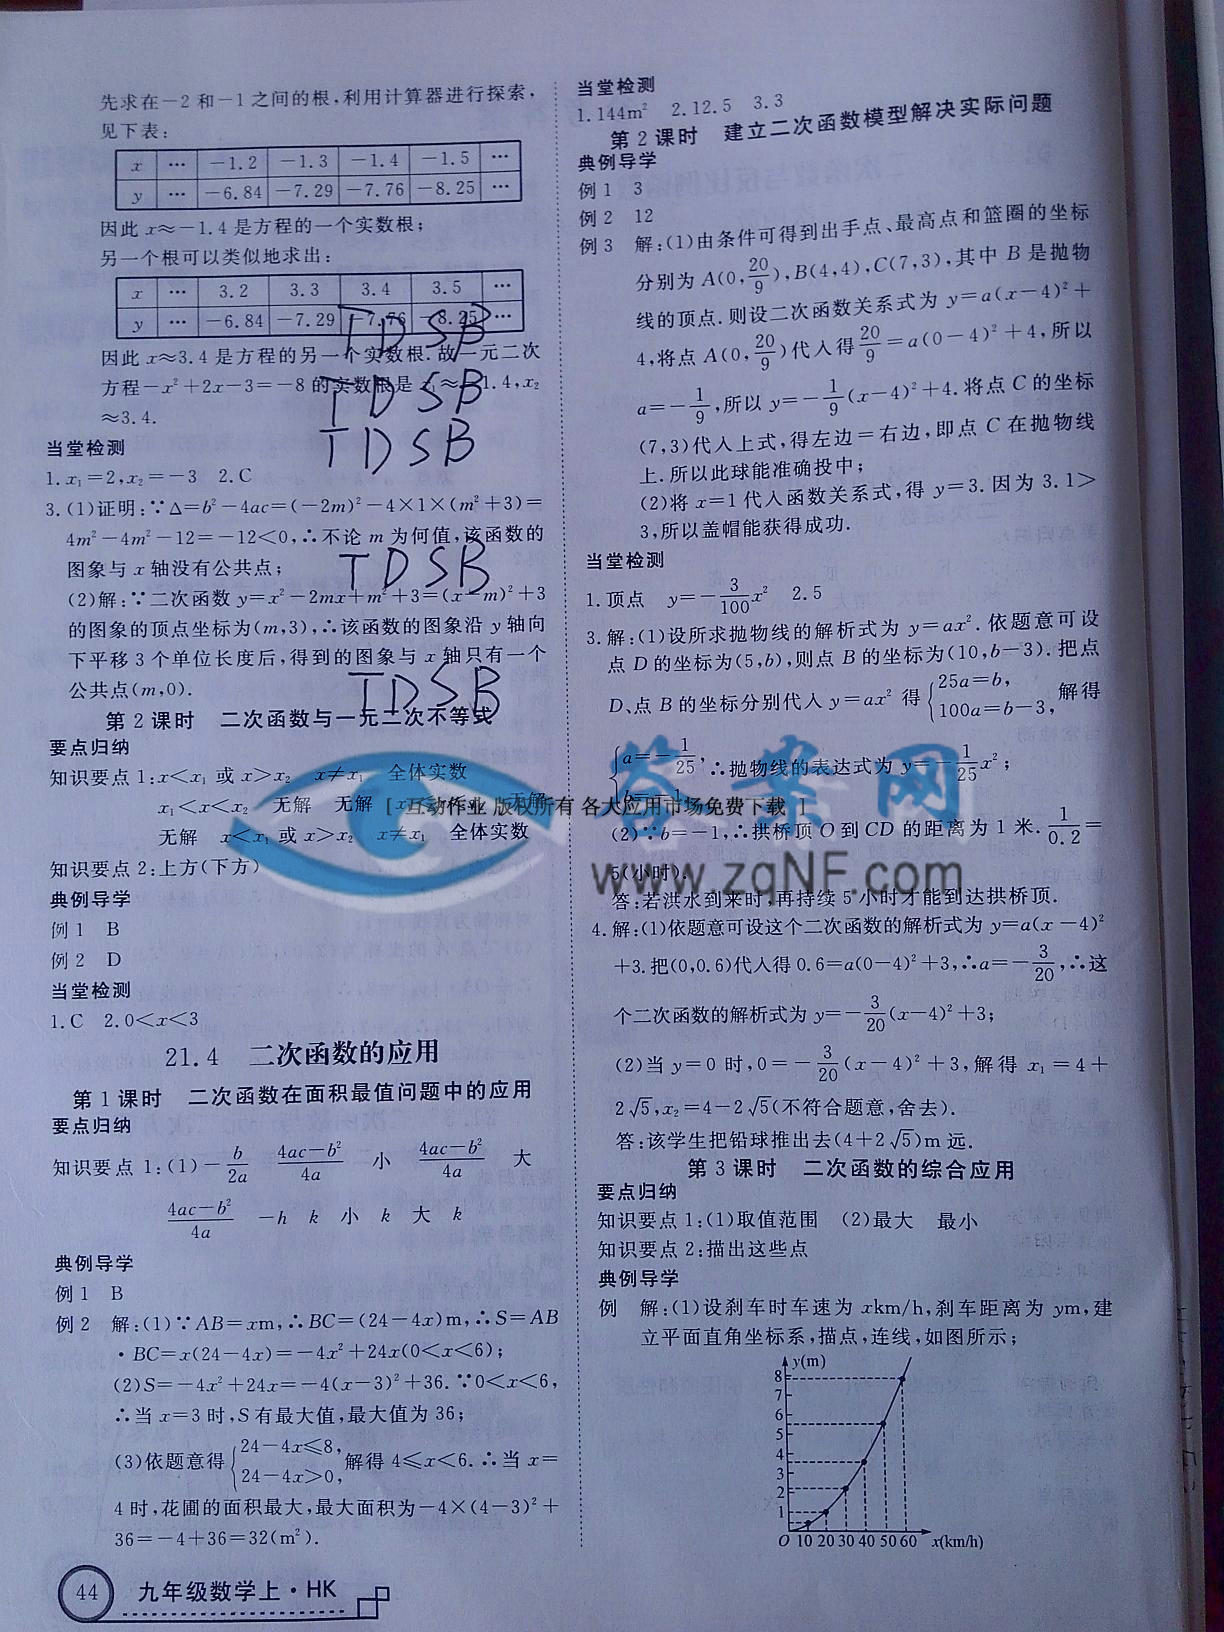 先求在－2和－1之间的根,利用计算器进行探索,
见下表:
x … －1.2 －1.3 －1.4 －1.5 …
y … －6.84 －7.29 －7.76 －8.25 …
因此 x≈－1.4 是方程的一个实数根;
另一个根可以类似地求出:
x … 3.2 3.3 3.4 3.5 …
y … －6.84 －7.29 －7.76 －8.25 …
TDSB
因此 x≈3.4 是方程的另一个实数根.故一元二次
方程－x²＋2x－3＝－8 的实数根是 x₁≈－1.4,x₂
≈3.4.
TDSB
TDSB
当堂检测
1.x₁＝2,x₂＝－3 2.C
3.(1)证明:∵Δ＝b²－4ac＝(－2m)²－4×1×(m²＋3)＝
4m²－4m²－12＝－12<0,∴不论 m 为何值,该函数的
图象与 x 轴没有公共点;
TDSB
(2)解:∵二次函数 y＝x²－2mx＋m²＋3＝(x－m)²＋3
的图象的顶点坐标为(m,3),∴该函数的图象沿 y 轴向
下平移 3 个单位长度后,得到的图象与 x 轴只有一个
公共点(m,0).
TDSB
第2课时 二次函数与一元二次不等式
要点归纳
知识要点1:x<x₁ 或 x>x₂ x≠x₁ 全体实数
x₁<x<x₂ 无解 无解 无解
无解 x<x₁ 或 x>x₂ x≠x₁ 全体实数
知识要点2:上方(下方)
典例导学
例1 B
例2 D
当堂检测
1.C 2.0<x<3
21.4 二次函数的应用
第1课时 二次函数在面积最值问题中的应用
要点归纳
知识要点1:(1)－b/2a (4ac－b²)/4a 小 (4ac－b²)/4a 大
(4ac－b²)/4a －h k 小 k 大 k
典例导学
例1 B
例2 解:(1)∵AB＝xm,∴BC＝(24－4x)m,∴S＝AB
·BC＝x(24－4x)＝－4x²＋24x(0<x<6);
(2)S＝－4x²＋24x＝－4(x－3)²＋36.∵0<x<6,
∴当 x＝3 时,S 有最大值,最大值为 36;
(3)依题意得{24－4x≤8, 24－4x>0, 解得 4≤x<6.∴当 x＝
4 时,花圃的面积最大,最大面积为－4×(4－3)²＋
36＝－4＋36＝32(m²).
44 九年级数学上·HK
当堂检测
1.144m² 2.12.5 3.3
第2课时 建立二次函数模型解决实际问题
典例导学
例1 3
例2 12
例3 解:(1)由条件可得到出手点、最高点和篮圈的坐标
分别为 A(0,20/9),B(4,4),C(7,3),其中 B 是抛物
线的顶点.则设二次函数关系式为 y＝a(x－4)²＋
4,将点 A(0,20/9)代入得20/9＝a(0－4)²＋4,所以
a＝－1/9,所以 y＝－1/9(x－4)²＋4.将点 C 的坐标
(7,3)代入上式,得左边＝右边,即点 C 在抛物线
上.所以此球能准确投中;
(2)将 x＝1 代入函数关系式,得 y＝3.因为 3.1>
3,所以盖帽能获得成功.
当堂检测
1.顶点 y＝－3/100x² 2.5
3.解:(1)设所求抛物线的解析式为 y＝ax².依题意可设
点 D 的坐标为(5,b),则点 B 的坐标为(10,b－3).把点
D、点 B 的坐标分别代入 y＝ax² 得{25a＝b, 100a＝b－3, 解得
{a＝－1/25, b＝－1. ∴抛物线的表达式为 y＝－1/25x²;
(2)∵b＝－1,∴拱桥顶 O 到 CD 的距离为 1 米.1/0.2＝
5(小时).
答:若洪水到来时,再持续 5 小时才能到达拱桥顶.
4.解:(1)依题意可设这个二次函数的解析式为 y＝a(x－4)²
＋3.把(0,0.6)代入得 0.6＝a(0－4)²＋3,∴a＝－3/20,∴这
个二次函数的解析式为 y＝－3/20(x－4)²＋3;
(2)当 y＝0 时,0＝－3/20(x－4)²＋3,解得 x₁＝4＋
2√5,x₂＝4－2√5(不符合题意,舍去).
答:该学生把铅球推出去(4＋2√5)m 远.
第3课时 二次函数的综合应用
要点归纳
知识要点1:(1)取值范围 (2)最大 最小
知识要点2:描出这些点
典例导学
例 解:(1)设刹车时车速为 xkm/h,刹车距离为 ym,建
立平面直角坐标系,描点,连线,如图所示;
y(m)
8
7
6
5
4
3
2
1
O 10 20 30 40 50 60 x(km/h)
答案网
[ 互动作业 版权所有 各大应用市场免费下载 ]
www.zqNF.com